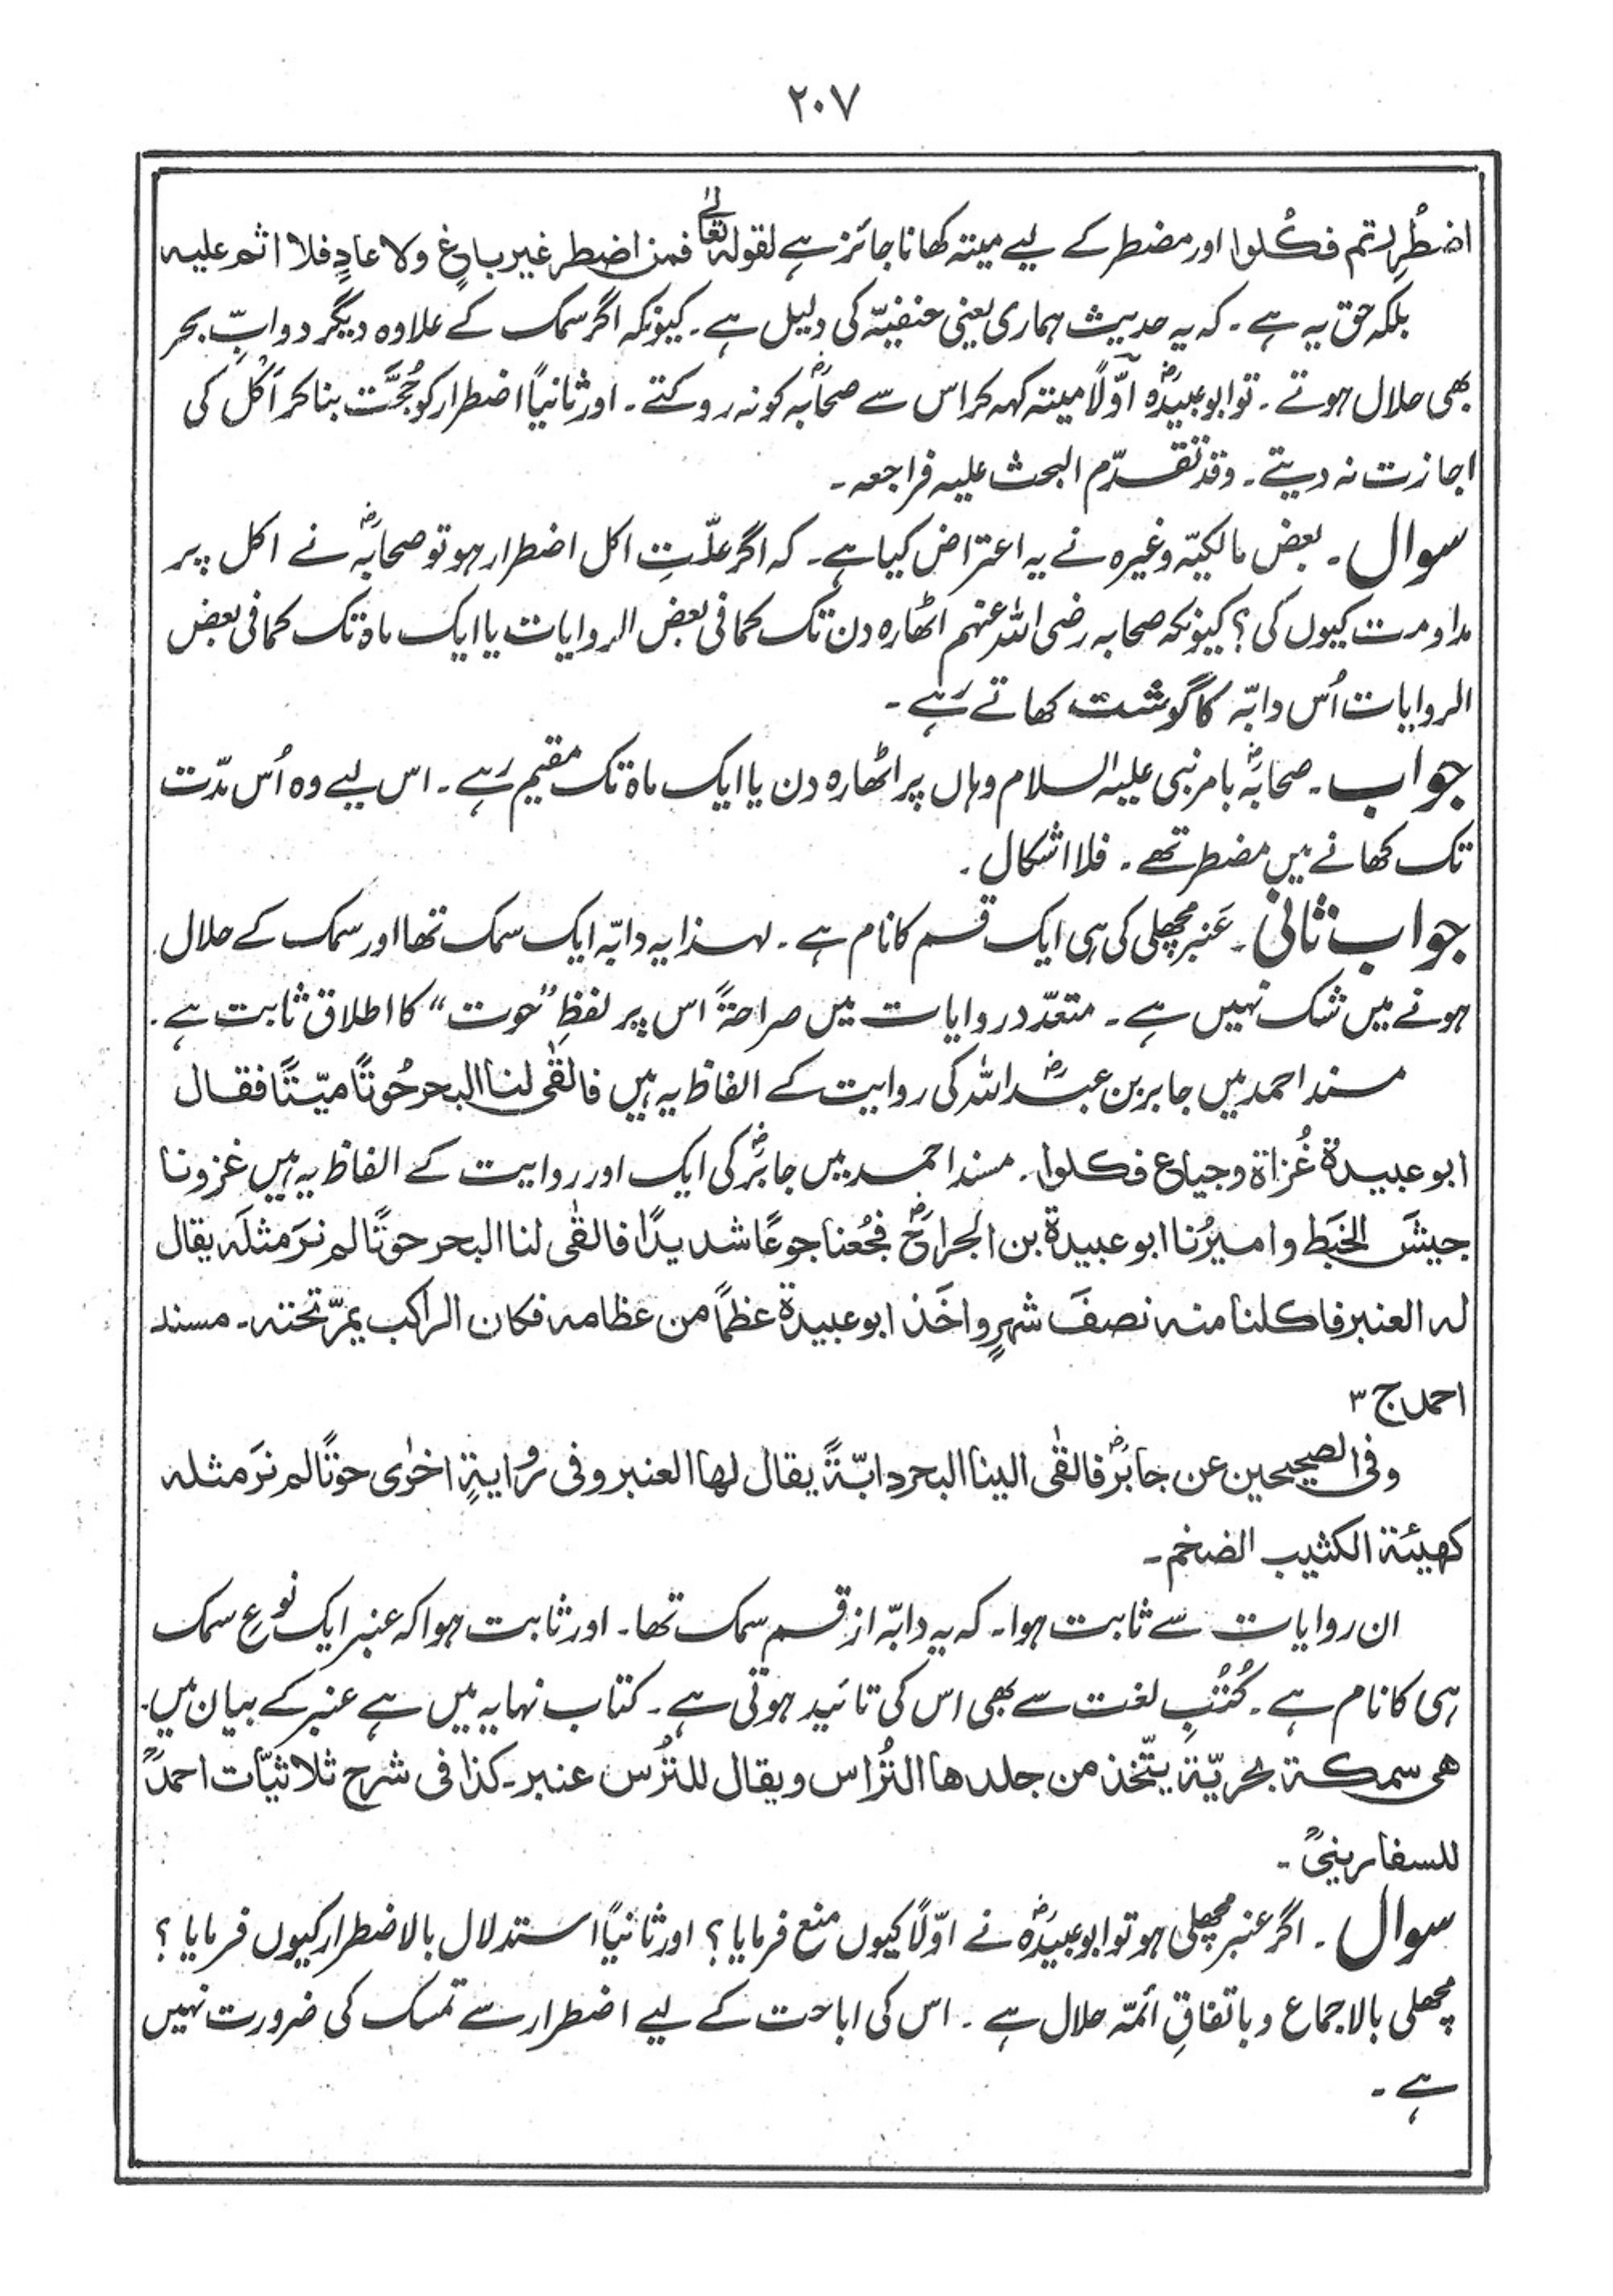 ۲۰۷
اضطُرِرتم فکُلوا اور مضطر کے لیے میتہ کھانا جائز ہے لقولہ تعالٰے فمن اضطر غیر باغٍ ولا عادٍ فلا اثم علیہ
بلکہ حق یہ ہے ۔ کہ یہ حدیث ہماری یعنی حنفیّہ کی دلیل ہے ۔ کیونکہ اگر سمک کے علاوہ دیگر دوابِّ بحر
بھی حلال ہوتے ۔ تو ابو عبیدہؓ اوّلاً میتہ کہہ کر اس سے صحابہؓ کو نہ روکتے ۔ اور ثانیاً اضطرار کو حُجّت بنا کر اَکل کی
اجازت نہ دیتے ۔ وقد تقدّم البحث علیہ فراجعہ ۔
سوال ۔ بعض مالکیّہ وغیرہ نے یہ اعتراض کیا ہے ۔ کہ اگر علّتِ اکل اضطرار ہو تو صحابہؓ نے اکل پر
مداومت کیوں کی ؟ کیونکہ صحابہ رضی اللہ عنہم اٹھارہ دن تک کما فی بعض الروایات یا ایک ماہ تک کما فی بعض
الروایات اُس دابّہ کا گوشت کھاتے رہے ۔
جواب ۔ صحابہؓ بامر نبی علیہ السلام وہاں پر اٹھارہ دن یا ایک ماہ تک مقیم رہے ۔ اس لیے وہ اُس مدّت
تک کھانے میں مضطر تھے ۔ فلا اشکال ۔
جواب ثانی ۔ عَنبر مچھلی کی ہی ایک قسم کا نام ہے ۔ لہٰذا یہ دابّہ ایک سمک تھا اور سمک کے حلال
ہونے میں شک نہیں ہے ۔ متعدّد روایات میں صراحۃً اس پر لفظِ ”حوت“ کا اطلاق ثابت ہے ۔
مسند احمد میں جابر بن عبداللہؓ کی روایت کے الفاظ یہ ہیں فالقٰی لنا البحر حُوتًا میّتًا فقال
ابو عبیدۃ غُزاۃ وجیاع فکلوا ۔ مسند احمد میں جابرؓ کی ایک اور روایت کے الفاظ یہ ہیں غزونا
جیشَ الخَبَط وامیرُنا ابو عبیدۃ بن الجراحؓ فجُعنا جوعًا شدیدًا فالقٰی لنا البحر حوتًا لم نرَ مثلَہ یقال
لہ العنبر فاکلنا منہ نصفَ شہرٍ واخَذ ابو عبیدۃ عظمًا من عظامہ فکان الراکب یمرّ تحتہ ۔ مسند
احمد ج ۳
وفی الصحیحین عن جابرؓ فالقٰی الینا البحر دابّۃً یقال لہا العنبر وفی روایۃٍ اخرٰی حوتًا لم نرَ مثلہ
کھیئۃ الکثیب الضخم ۔
ان روایات سے ثابت ہوا ۔ کہ یہ دابّہ از قسم سمک تھا ۔ اور ثابت ہوا کہ عنبر ایک نوعِ سمک
ہی کا نام ہے ۔ کُتُبِ لغت سے بھی اس کی تائید ہوتی ہے ۔ کتاب نہایہ میں ہے عنبر کے بیان میں ۔
ھی سمکۃ بحریّۃ یتّخذ من جلدھا التُراس ویقال للتُرس عنبر ۔ کذا فی شرح ثلاثیّات احمدؒ
للسفارینیؒ ۔
سوال ۔ اگر عنبر مچھلی ہو تو ابو عبیدہؓ نے اوّلاً کیوں منع فرمایا ؟ اور ثانیاً استدلال بالاضطرار کیوں فرمایا ؟
مچھلی بالاجماع و باتفاقِ ائمّہ حلال ہے ۔ اس کی اباحت کے لیے اضطرار سے تمسک کی ضرورت نہیں
ہے ۔